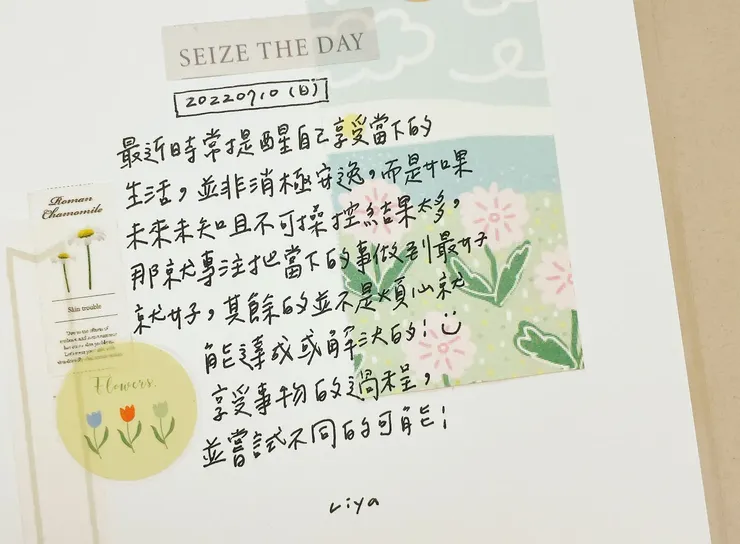 SEIZE THE DAY
20220710 (日)
最近時常提醒自己享受當下的
生活，並非消極安逸，而是如果
未來未知且不可操控結果太多，
那就專注把當下的事做到最好
就好，其餘的並不是煩心就
能達成或解決的！
享受事物的過程，
並嘗試不同的可能！
Liya
Roman
Chamomile
Skin trouble
Flowers.